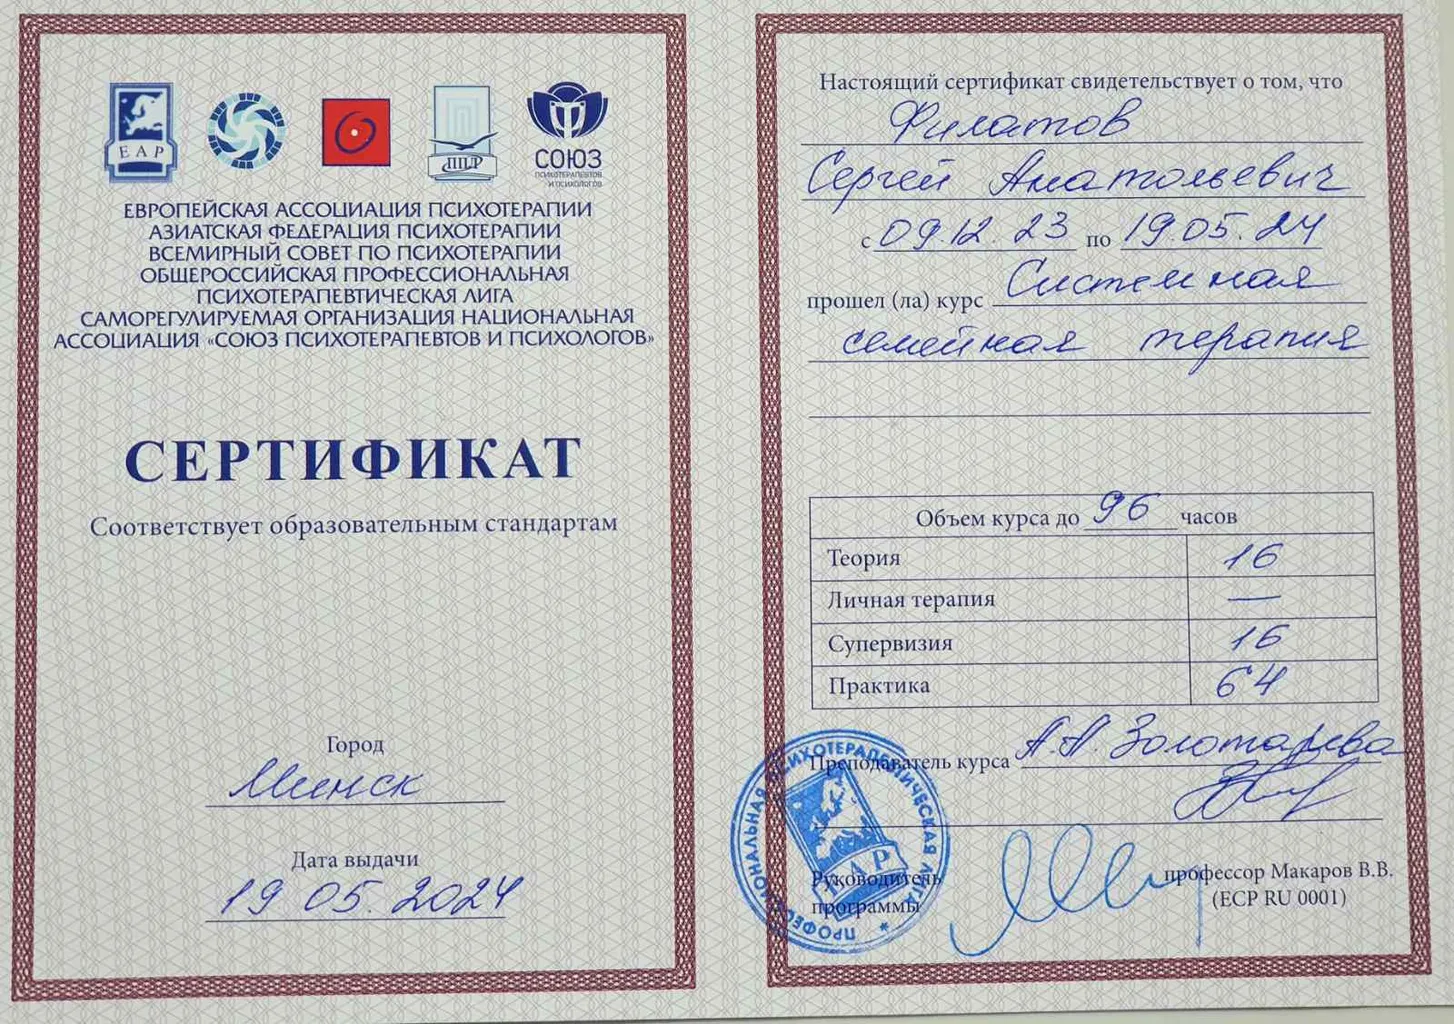 ЕАР
ППЛ
СОЮЗ
ПСИХОТЕРАПЕВТОВ
И ПСИХОЛОГОВ
ЕВРОПЕЙСКАЯ АССОЦИАЦИЯ ПСИХОТЕРАПИИ
АЗИАТСКАЯ ФЕДЕРАЦИЯ ПСИХОТЕРАПИИ
ВСЕМИРНЫЙ СОВЕТ ПО ПСИХОТЕРАПИИ
ОБЩЕРОССИЙСКАЯ ПРОФЕССИОНАЛЬНАЯ
ПСИХОТЕРАПЕВТИЧЕСКАЯ ЛИГА
САМОРЕГУЛИРУЕМАЯ ОРГАНИЗАЦИЯ НАЦИОНАЛЬНАЯ
АССОЦИАЦИЯ «СОЮЗ ПСИХОТЕРАПЕВТОВ И ПСИХОЛОГОВ»
СЕРТИФИКАТ
Соответствует образовательным стандартам
Город
Минск
Дата выдачи
19 05. 2024
Настоящий сертификат свидетельствует о том, что
Филатов
Сергей Анатольевич
с 09.12.23 по 19.05.24
прошел (ла) курс Системная
семейная терапия
Объем курса до 96 часов
Теория 16
Личная терапия —
Супервизия 16
Практика 64
Преподаватель курса А.А. Золотарева
Руководитель
программы
профессор Макаров В.В.
(ECP RU 0001)
ПРОФЕССИОНАЛЬНАЯ ПСИХОТЕРАПЕВТИЧЕСКАЯ ЛИГА
ЕАР